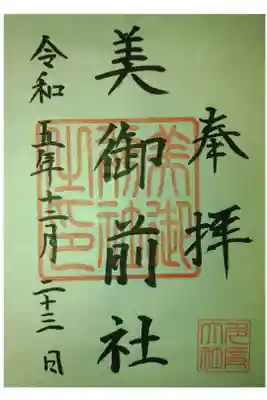 奉拝
美御前社
令和五年十二月二十三日